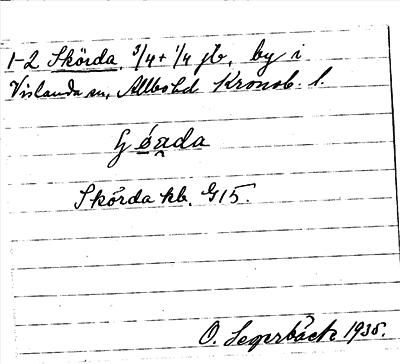 1-2 Skörda, 3/4 + 1/4 jb, by i
Vislanda sn, Allbo hd Kronob. l.
Skörda kb. G15.
O. Segerbäck 1935.